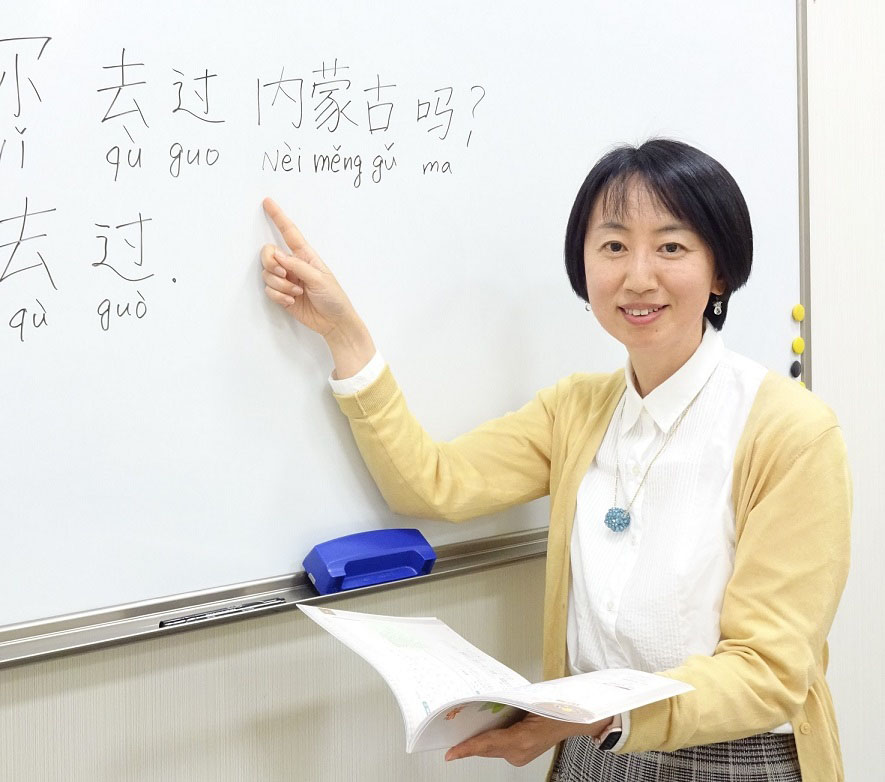 你 去 过 内蒙古 吗?
nǐ qù guo Nèi měng gǔ ma
去 过.
qù guò